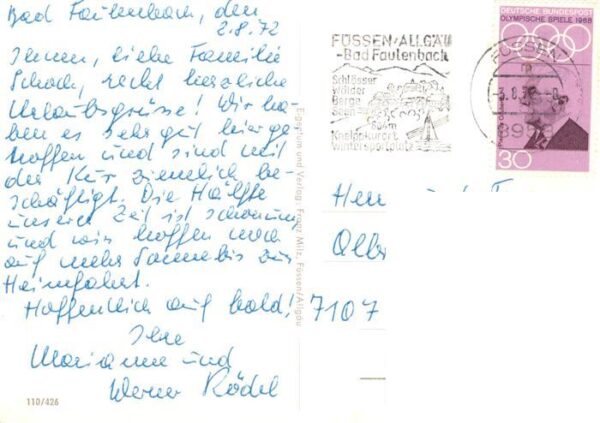 Bad Faulenbach, den
2.8.72
Ihnen, liebe Familie
Schoch, recht herzliche
Urlaubsgrüsse! Wir ha-
ben es sehr gut hier ge-
troffen und sind mit
der Kur ziemlich be-
schäftigt. Die Hälfte
unserer Zeit ist schon um
und wir hoffen noch
auf mehr Sonne bis zur
Heimfahrt.
Hoffentlich auf bald!
Ihre
Marianne und
Werner Rödel
110/426
Eigentum und Verlag: Franz Milz, Füssen/Allgäu
FÜSSEN/ALLGÄU
-Bad Faulenbach
Schlösser
Wälder
Berge
Seen
800m
Kneippkurort
Wintersportplatz
FÜSSEN
-3.8.72-8
8958
DEUTSCHE BUNDESPOST
OLYMPISCHE SPIELE 1968
30
7107